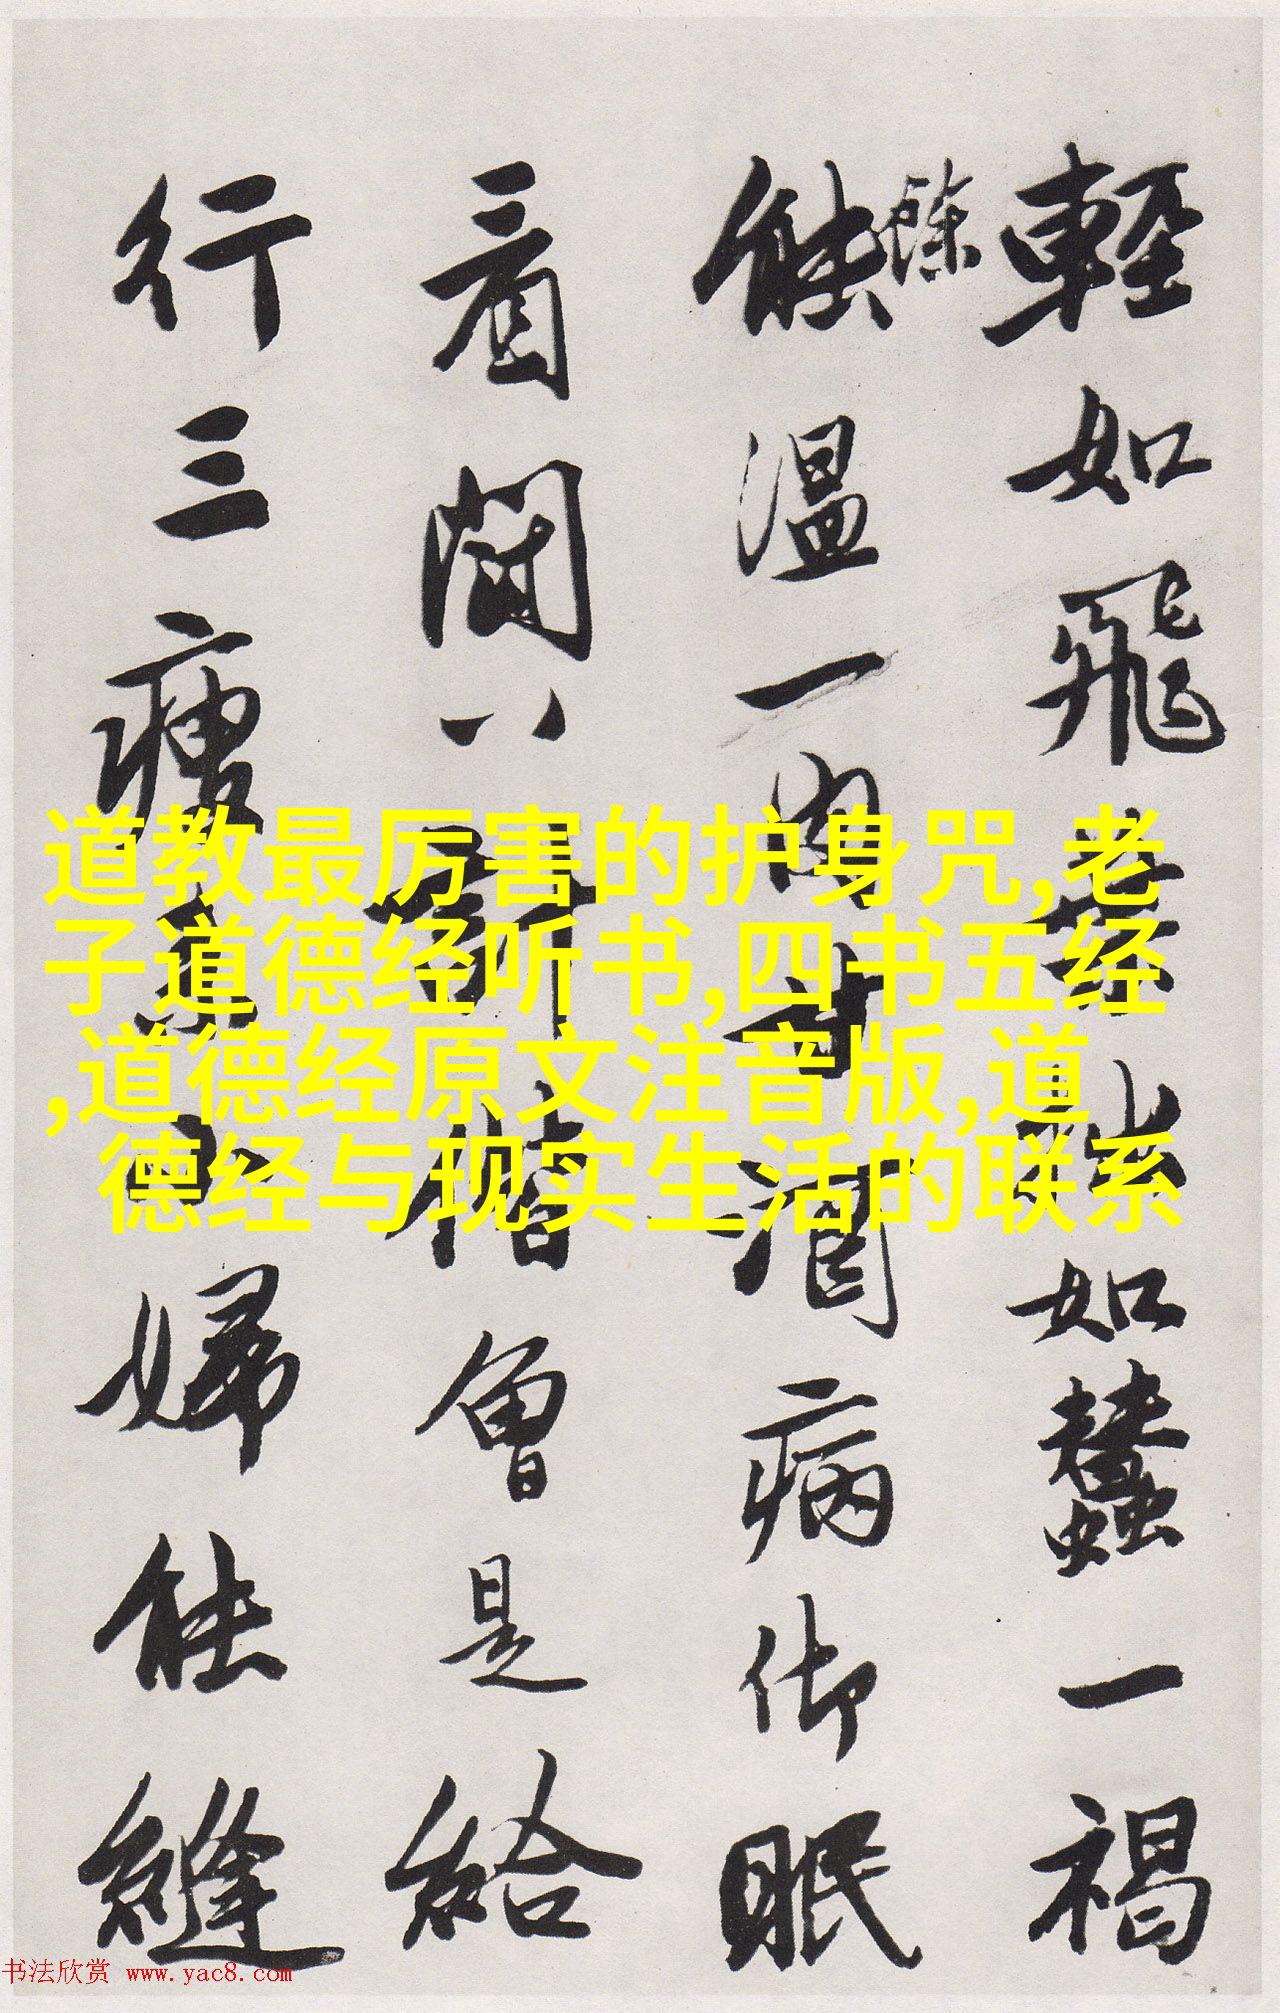 輕如飛如蠶一褐
餘
能溫一肉才潤病御眠
看八曾是給
行三瘦婦能縫
道教最厉害的护身咒,老
子道德经听书,四书五经
,道德经原文注音版,道
德经与现实生活的联系
书法欣赏 www.yac8.com